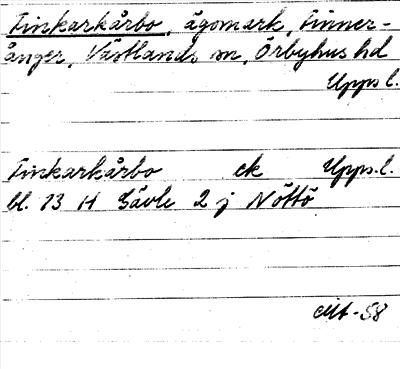 Finkarkårbo, ägomark, Finner-
ånger, Västlands sn, Örbyhus hd
Upps l.
Finkarkårbo ek Upps. l.
bl. 13 H Gävle 2 j Nöttö
-58